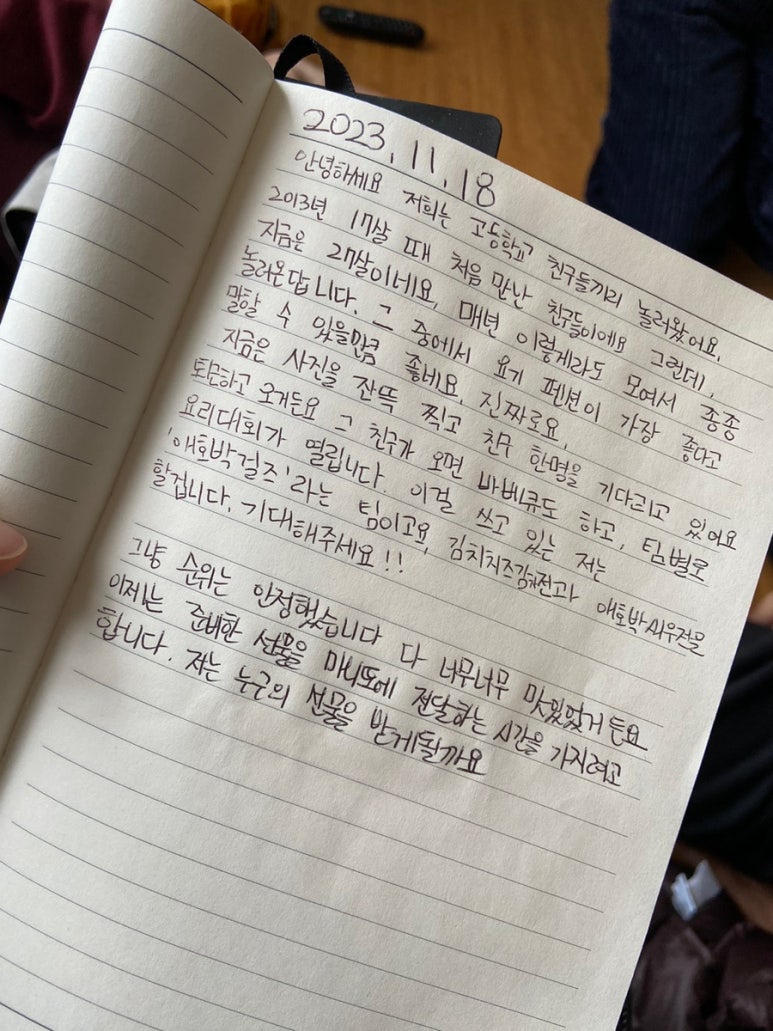 2023. 11. 18
안녕하세요 저희는 고등학교 친구들끼리 놀러왔어요.
2013년 17살 때 처음 만난 친구들이에요 그런데,
지금은 27살이네요, 매년 이렇게라도 모여서 종종
놀러온답니다. 그 중에서 요기 펜션이 가장 좋다고
말할 수 있을만큼 좋네요. 진짜로요.
지금은 사진을 잔뜩 찍고 친구 한명을 기다리고 있어요
퇴근하고 오거든요 그 친구가 오면 바베큐도 하고, 팀별로
요리대회가 열립니다. 이걸 쓰고 있는 저는
'애호박걸즈'라는 팀이고요, 김치치즈감자전과 애호박새우전을
할겁니다. 기대해주세요!!
그냥 순위는 안정했습니다 다 너무너무 맛있었거든요
이제는 준비한 선물을 마니또에 전달하는 시간을 가지려고
합니다. 저는 누군의 선물을 받게될까요